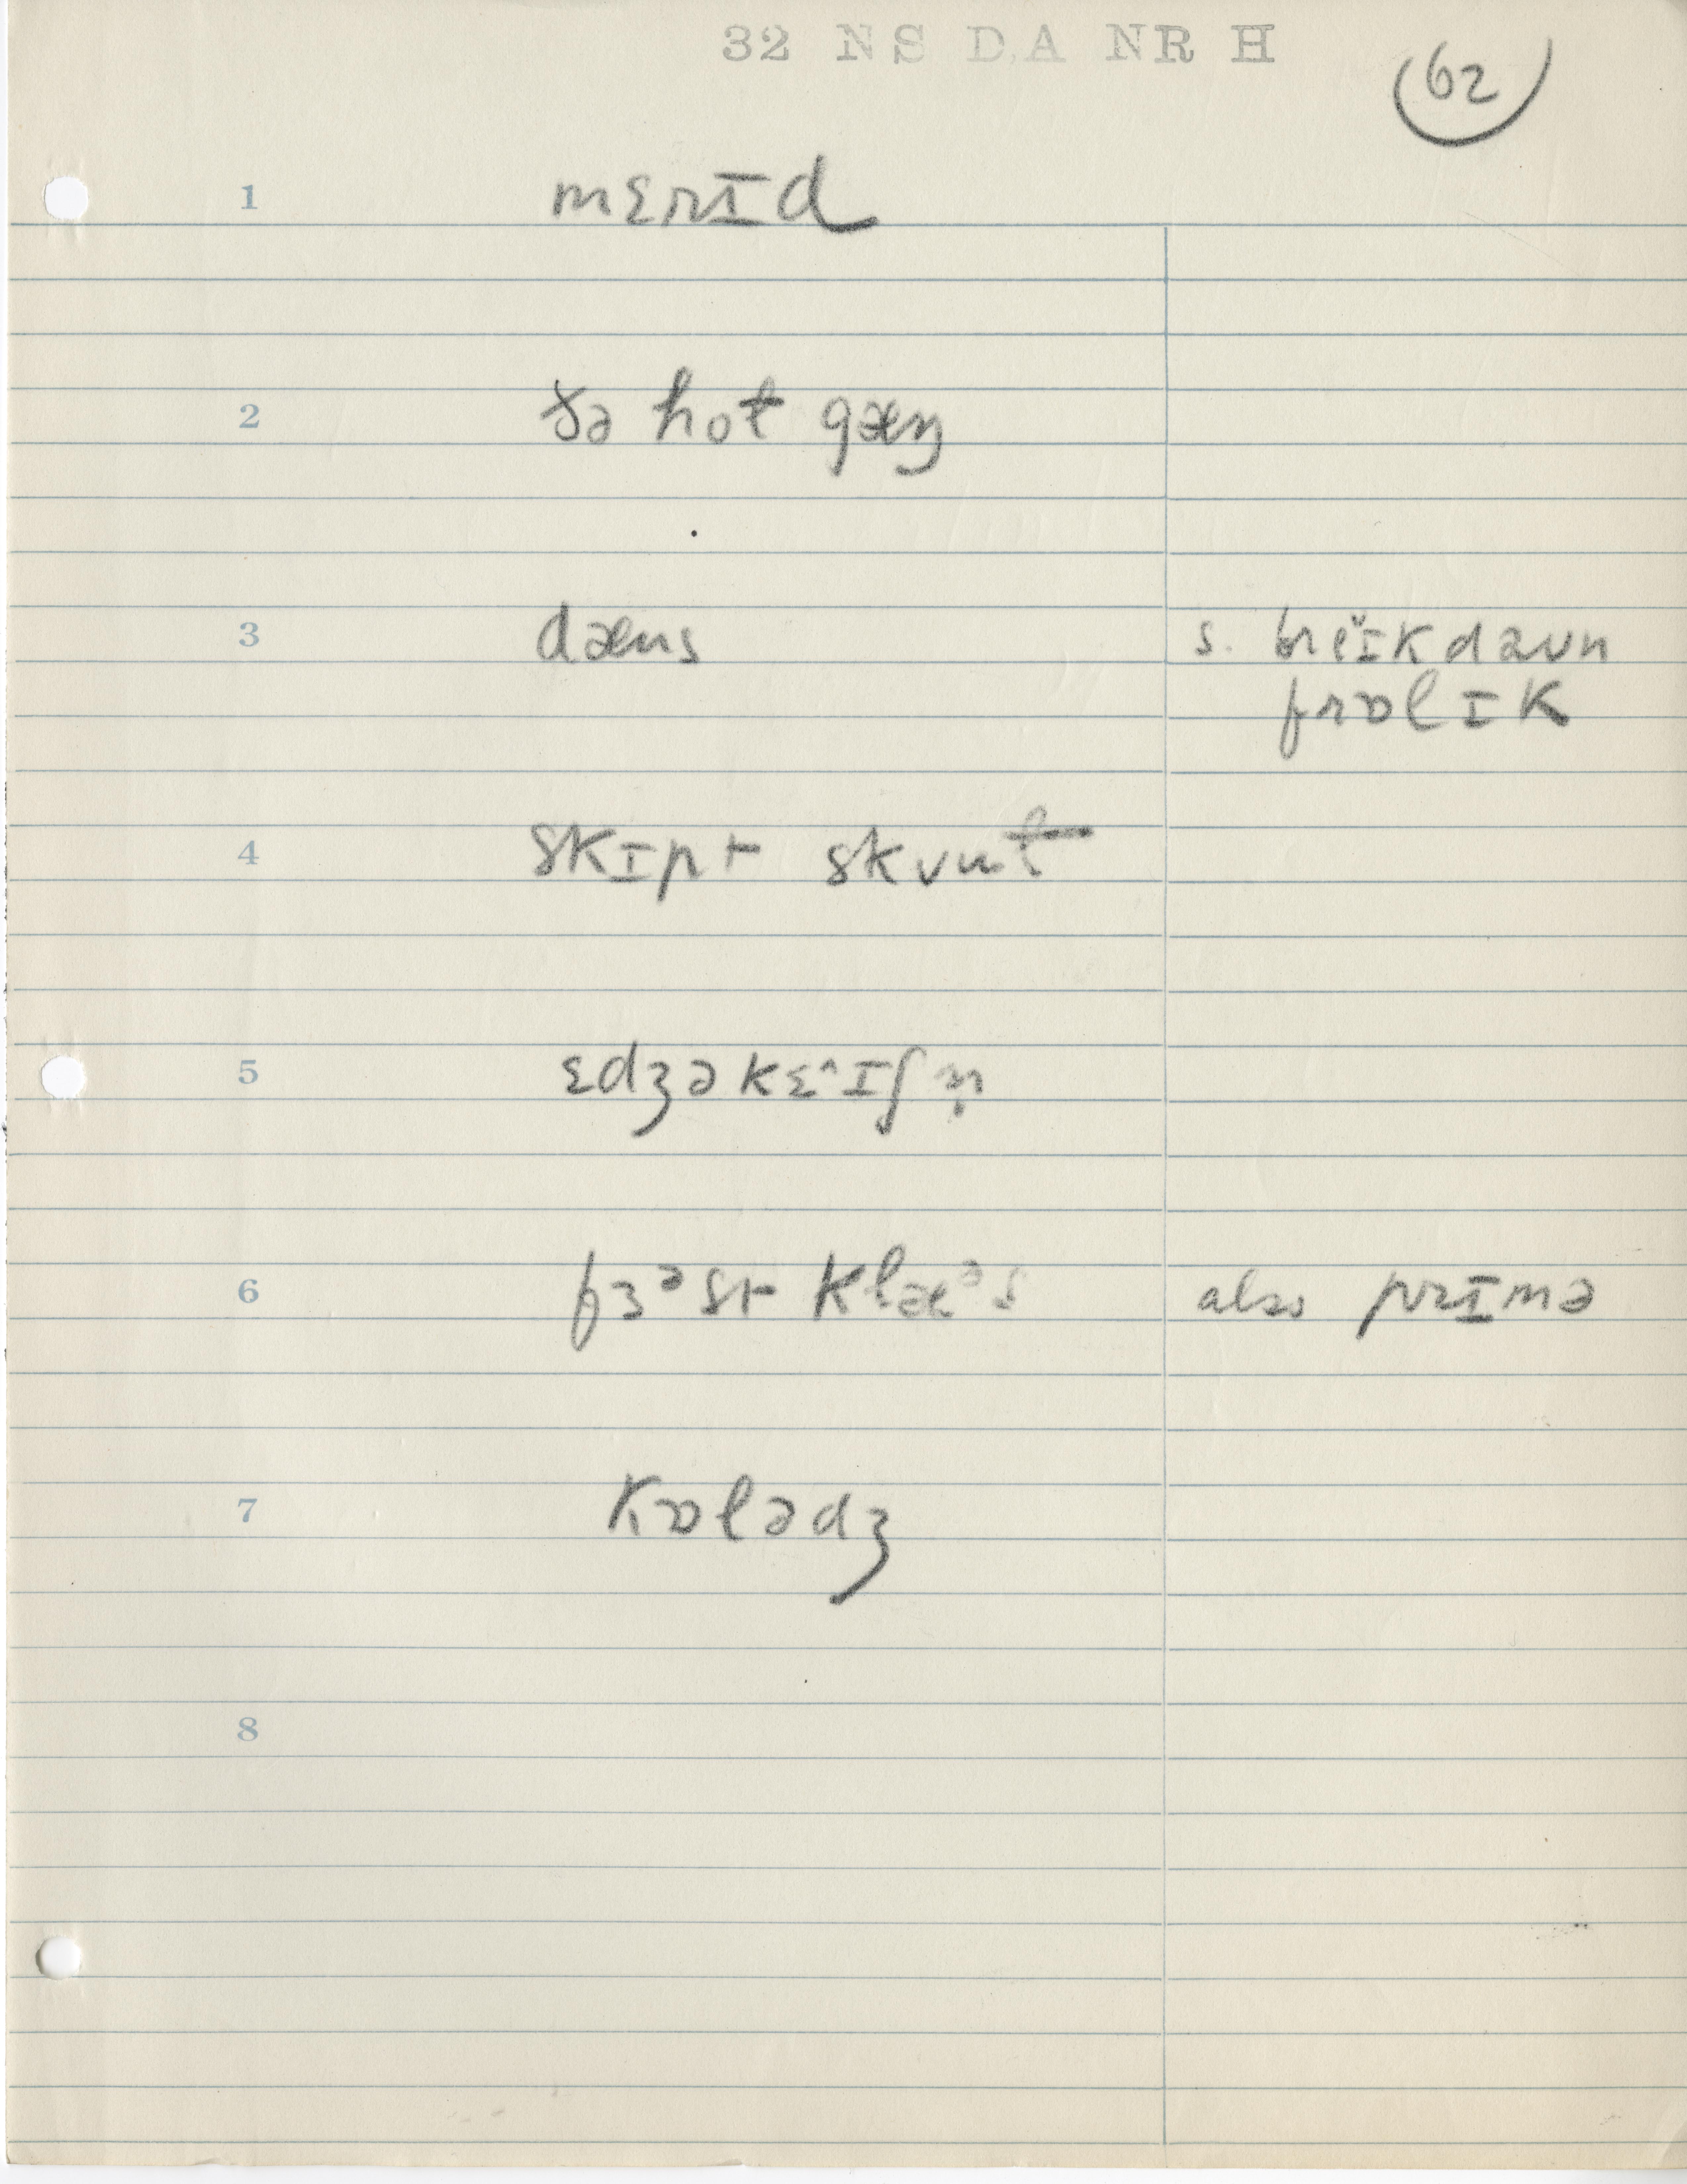 32 NS DA NR H
62
1 mɛrɪd
2 ðə hot gæŋ
3 dæns s. brĕɪkdaʊn
frɒlɪk
4 skɪpt skʊut
5 ɛdʒəkɛ^ɪʃn̩
6 fɜᵊst klæᵊs also prɪmə
7 kɒlədʒ
8